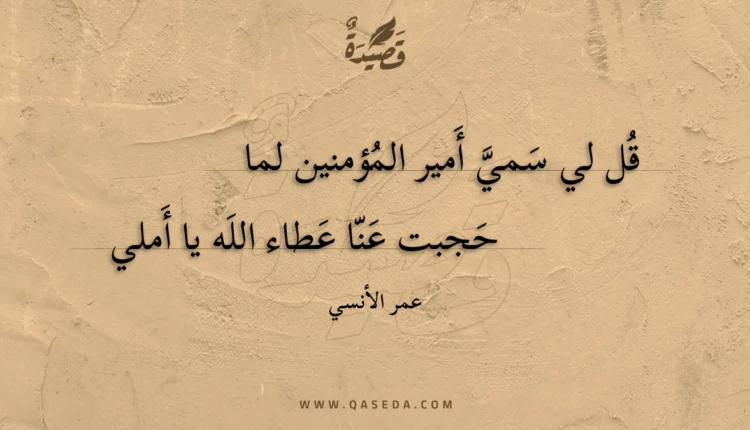 قَصِيْدَةٌ
قُل لي سَميَّ أَمير المُؤمنين لما
حَجبت عَنّا عَطاء اللَه يا أَملي
عمر الأنسي
WWW.QASEDA.COM